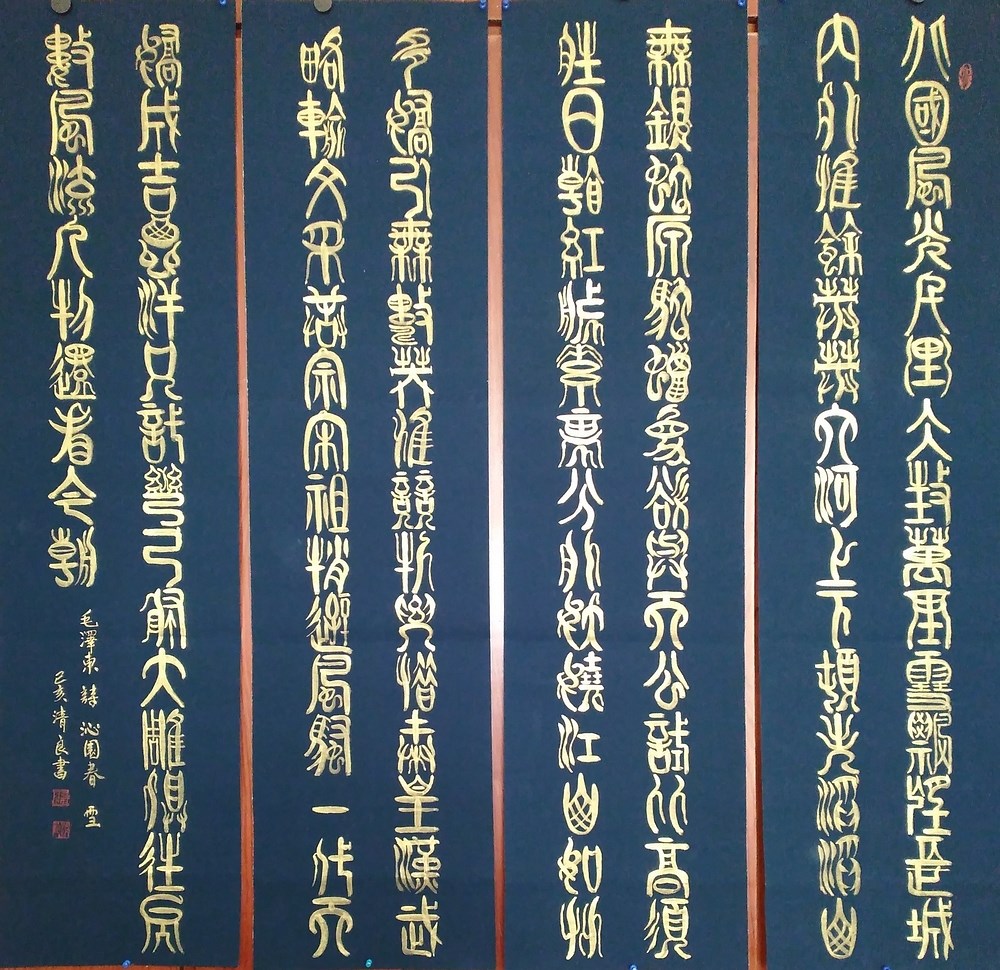 北國風光千里冰封萬里雪飄望長城
內外惟餘莽莽大河上下頓失滔滔山
舞銀蛇原馳蠟象欲與天公試比高須
晴日看紅裝素裹分外妖嬈江山如此
多嬌引無數英雄競折腰惜秦皇漢武
略輸文采唐宗宋祖稍遜風騷一代天
驕成吉思汗只識彎弓射大雕俱往矣
數風流人物還看今朝
毛澤東 詩 沁園春 雪
己亥清良書